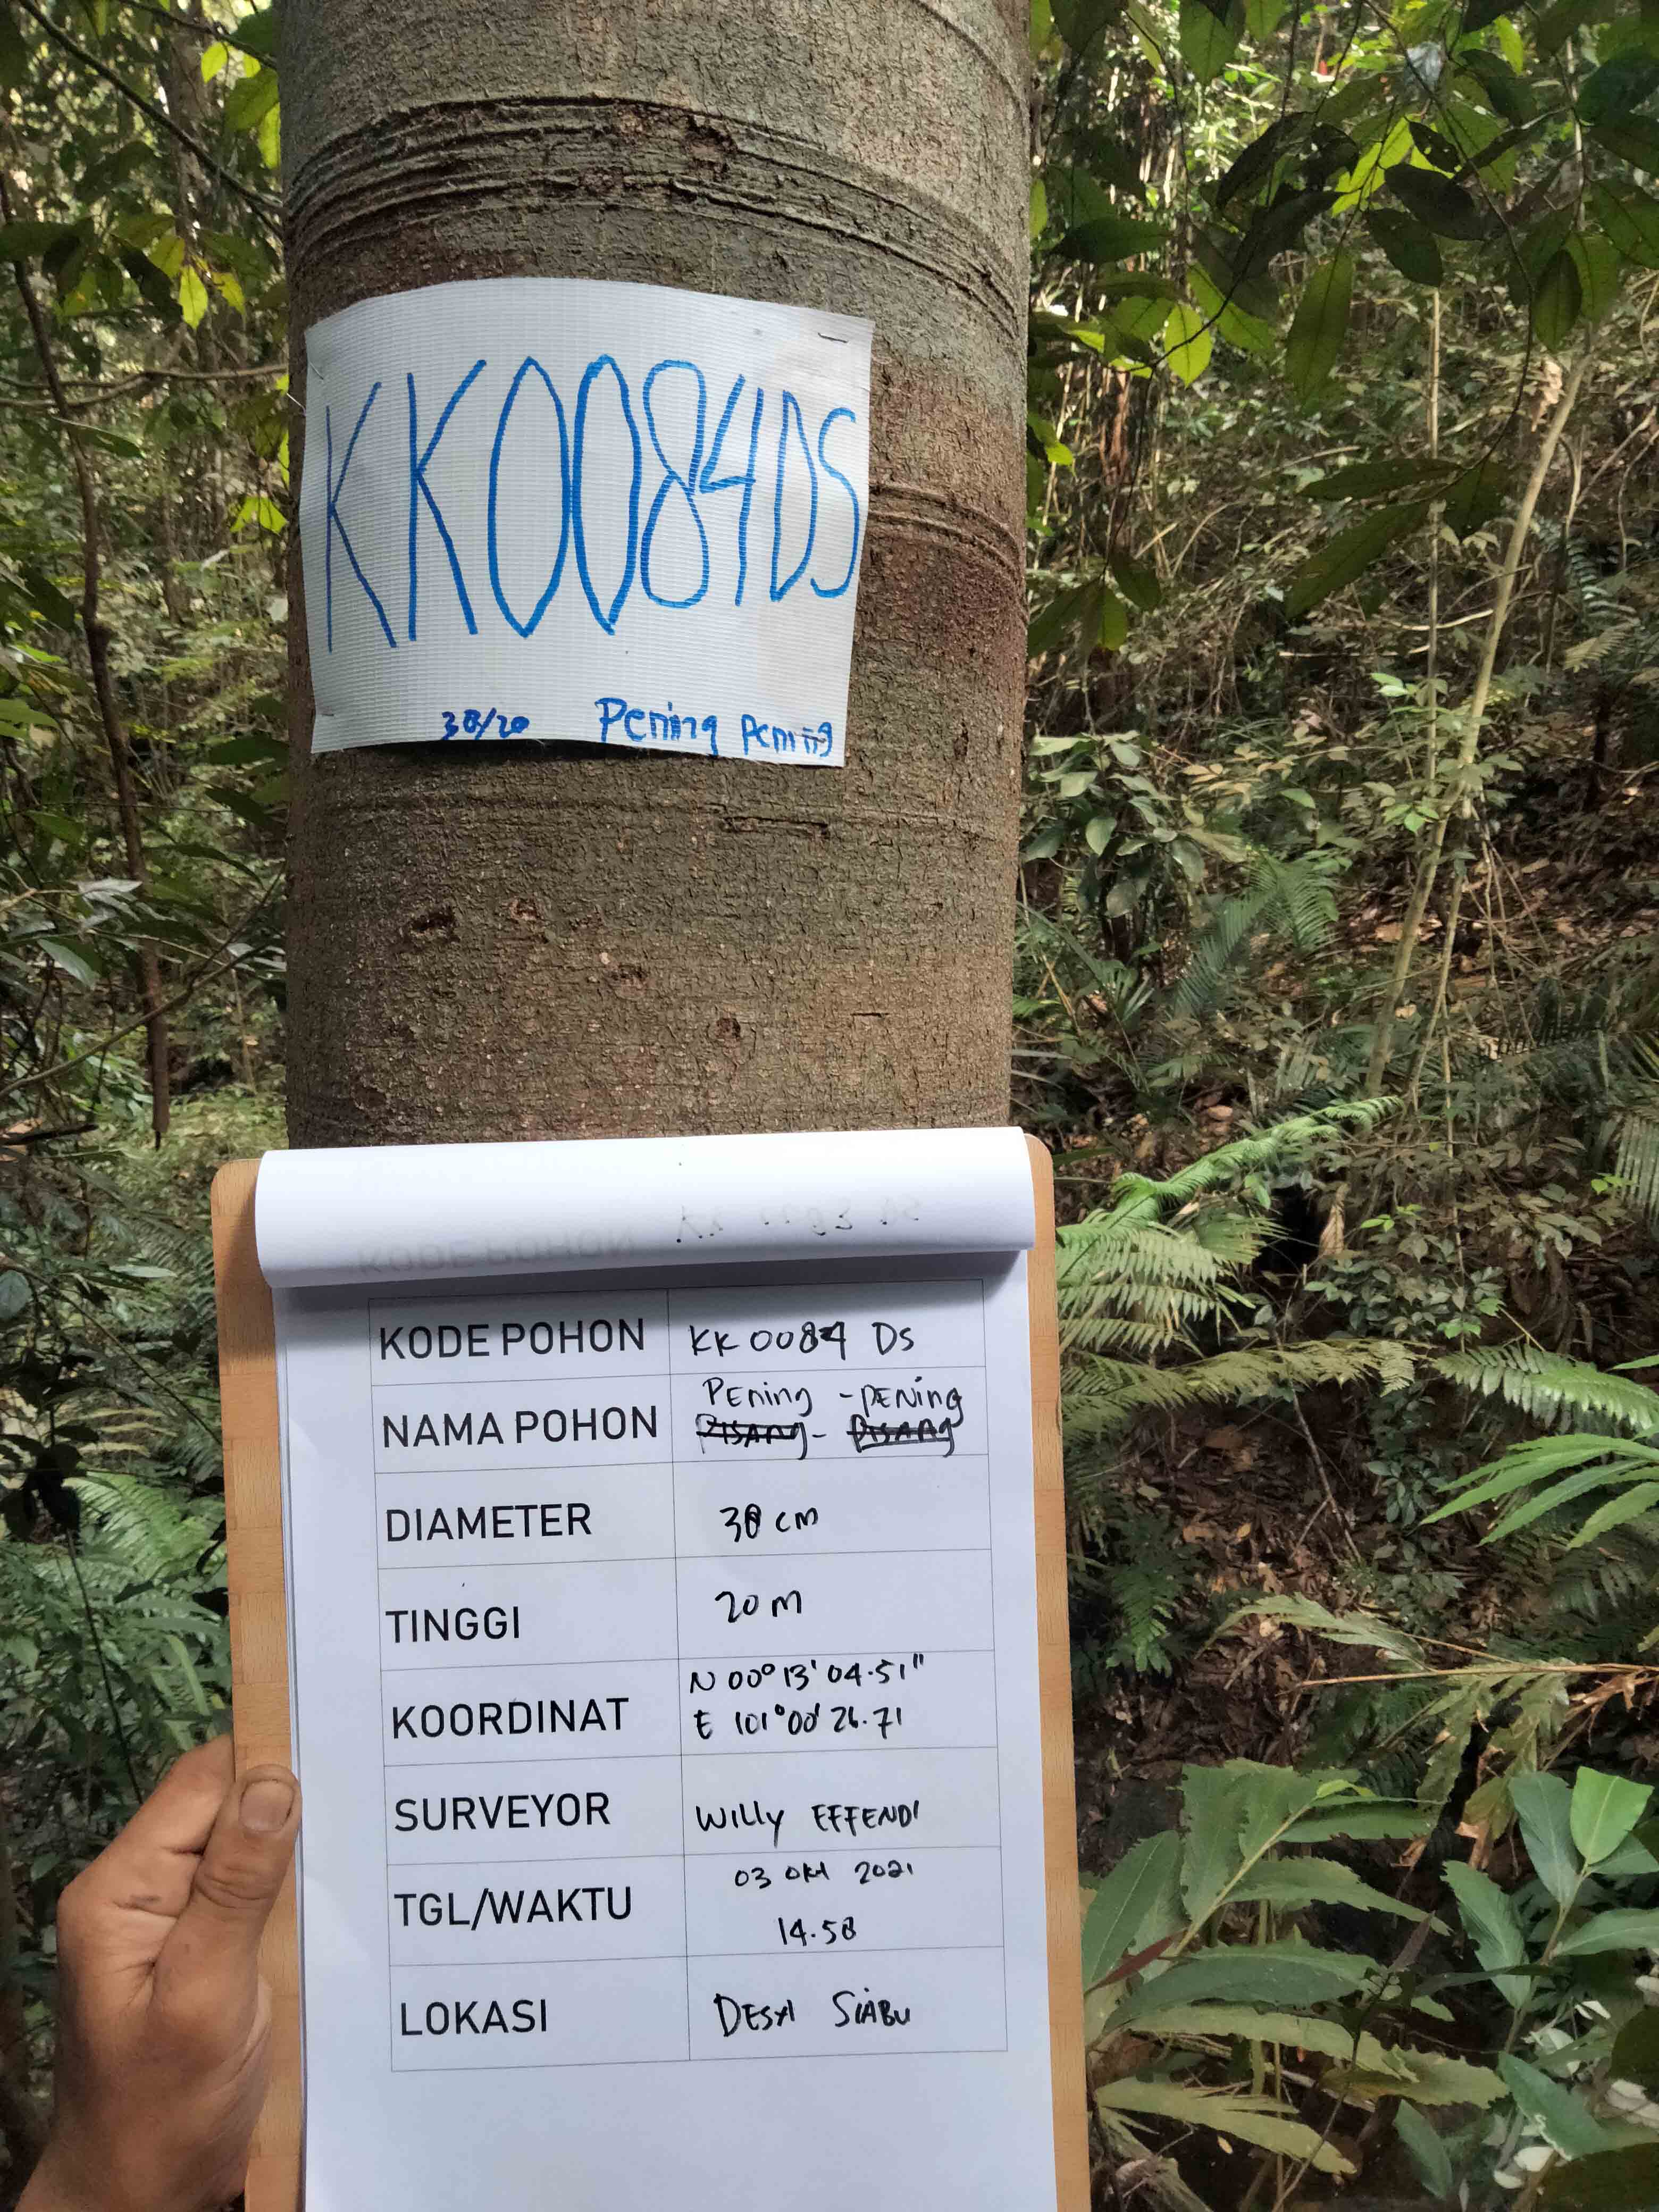 KK0084DS
38/20 Pening Pening
KODE POHON KK 0084 DS
NAMA POHON PENing - PENing
PISANG - PISANG
DIAMETER 38 cm
TINGGI 20 m
KOORDINAT N 00° 13' 04.51"
E 101° 00' 26.71
SURVEYOR WILLY EFFENDI
TGL/WAKTU 03 Okt 2021
14.58
LOKASI DESA SIABU